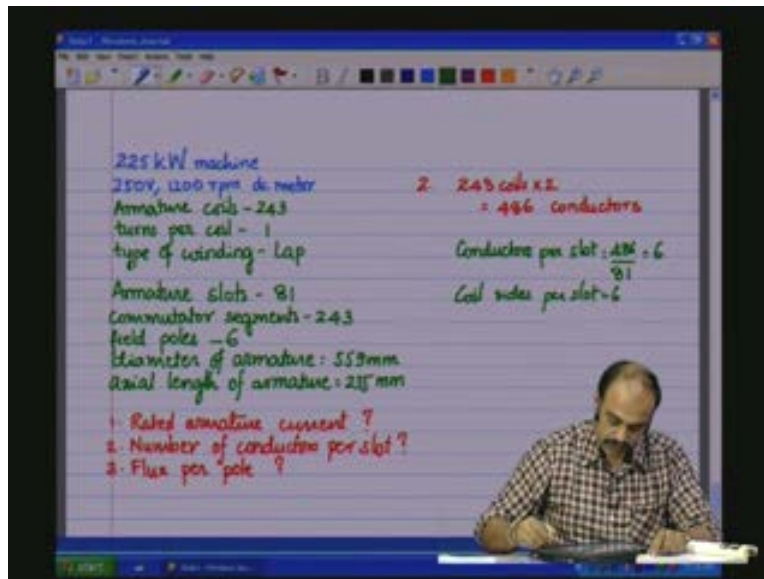 225 kW machine
250V, 1200 rpm dc motor
Armature coils - 243
turns per coil - 1
type of winding - Lap
Armature slots - 81
commutator segments - 243
field poles - 6
diameter of armature = 559mm
axial length of armature = 235 mm
1. Rated armature current ?
2. Number of conductors per slot ?
3. Flux per pole ?
2 243 coils x 2
= 486 conductors
Conductors per slot = 486/81 = 6
Coil sides per slot = 6